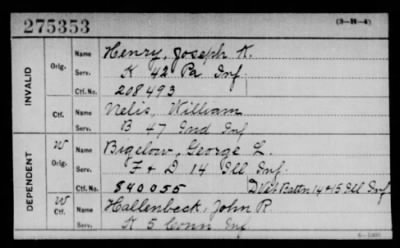 275353
(3-H-4)
INVALID
Orig.
Name Henry, Joseph K.
Serv. K 42 Pa Inf
Ctf. No. 208493
Ctf.
Name Nelis, William
Serv. B 47 Ind Inf
DEPENDENT
W
Orig.
Name Bigelow, George L.
Serv. F & D 14 Ill Inf.
Ctf. No. 840055 D Vet Battn 14 & 15 Ill Inf
W
Ctf.
Name Hallenbeck, John R.
Serv. K 5 Conn Inf